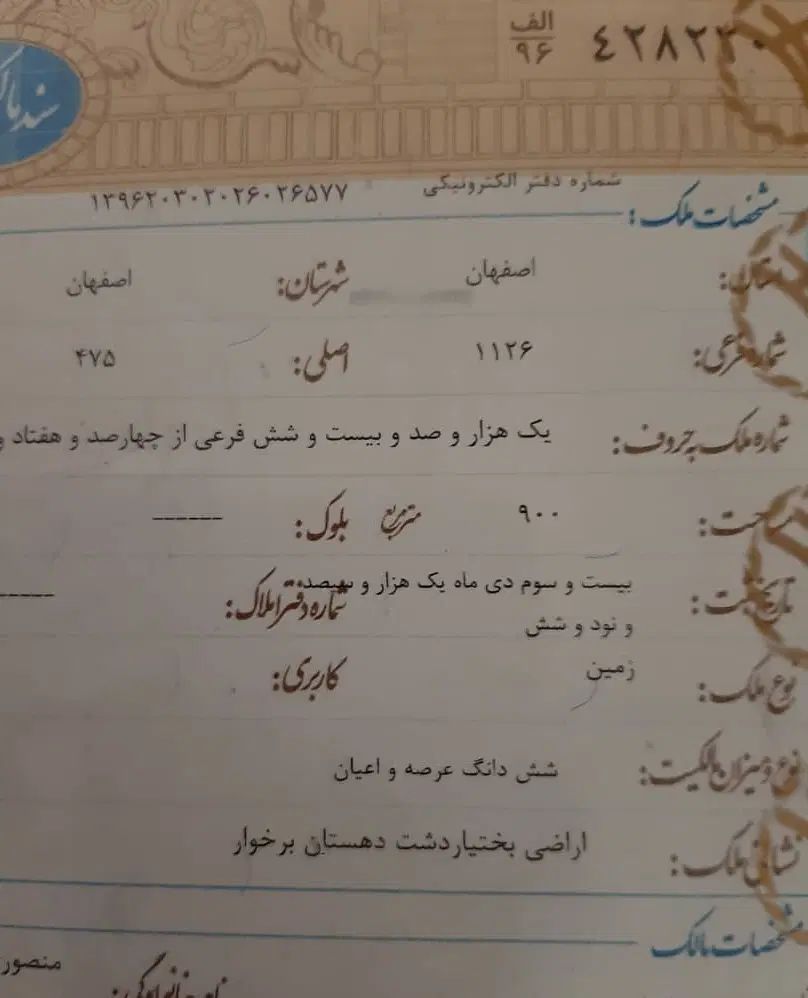 الف
۹۶
۴۲۸۲۳۰
شماره دفتر الکترونیکی ۱۳۹۶۲۰۳۰۲۰۲۶۰۲۶۵۷۷
مشخصات ملک:
استان: اصفهان شهرستان: اصفهان
شماره فرعی: ۱۱۲۶ اصلی: ۴۷۵
شماره ملک به حروف: یک هزار و صد و بیست و شش فرعی از چهارصد و هفتاد و
مساحت: ۹۰۰ مترمربع بلوک: ------
تاریخ ثبت: بیست و سوم دی ماه یک هزار و سیصد شماره دفتر املاک: -----
و نود و شش
نوع ملک: زمین کاربری:
نوع و میزان مالکیت: شش دانگ عرصه و اعیان
نشانی ملک: اراضی بختیاردشت دهستان برخوار
مشخصات مالک
منصور